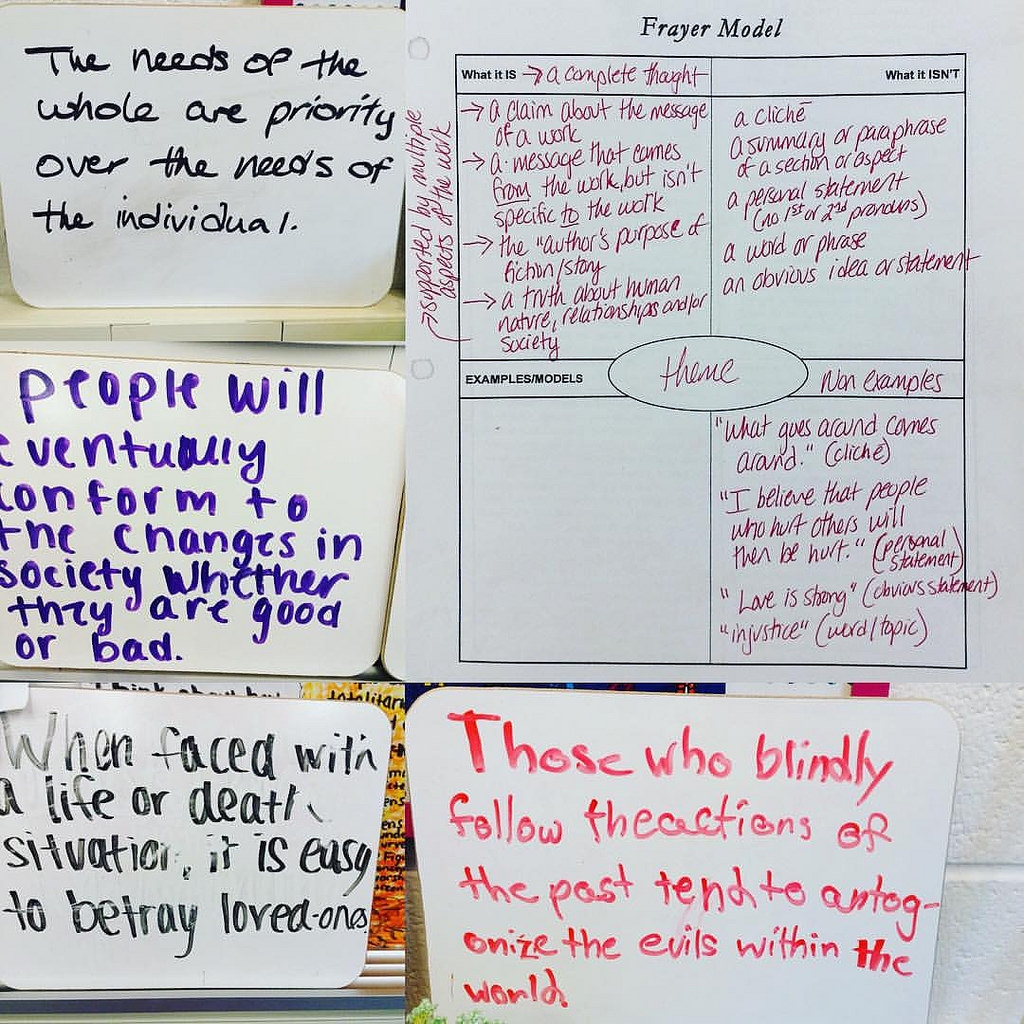 The needs of the
whole are priority
over the needs of
the individual.
people will
eventually
conform to
the changes in
society whether
they are good
or bad.
When faced with
a life or death
situation, it is easy
to betray loved-ones.
Frayer Model
What it IS → a complete thought
→ a claim about the message
of a work
→ a message that comes
from the work, but isn't
specific to the work
→ the "author's purpose of
fiction/story
→ a truth about human
nature, relationships and/or
society
→ supported by multiple
aspects of the work
What it ISN'T
a cliché
a summary or paraphrase
of a section or aspect
a personal statement
(no 1st or 2nd pronouns)
a word or phrase
an obvious idea or statement
theme
EXAMPLES/MODELS
Non examples
"What goes around comes
around." (cliché)
"I believe that people
who hurt others will
then be hurt." (personal
statement)
"Love is strong" (obvious statement)
"injustice" (word/topic)
Those who blindly
follow the actions of
the past tend to antag-
onize the evils within the
world.